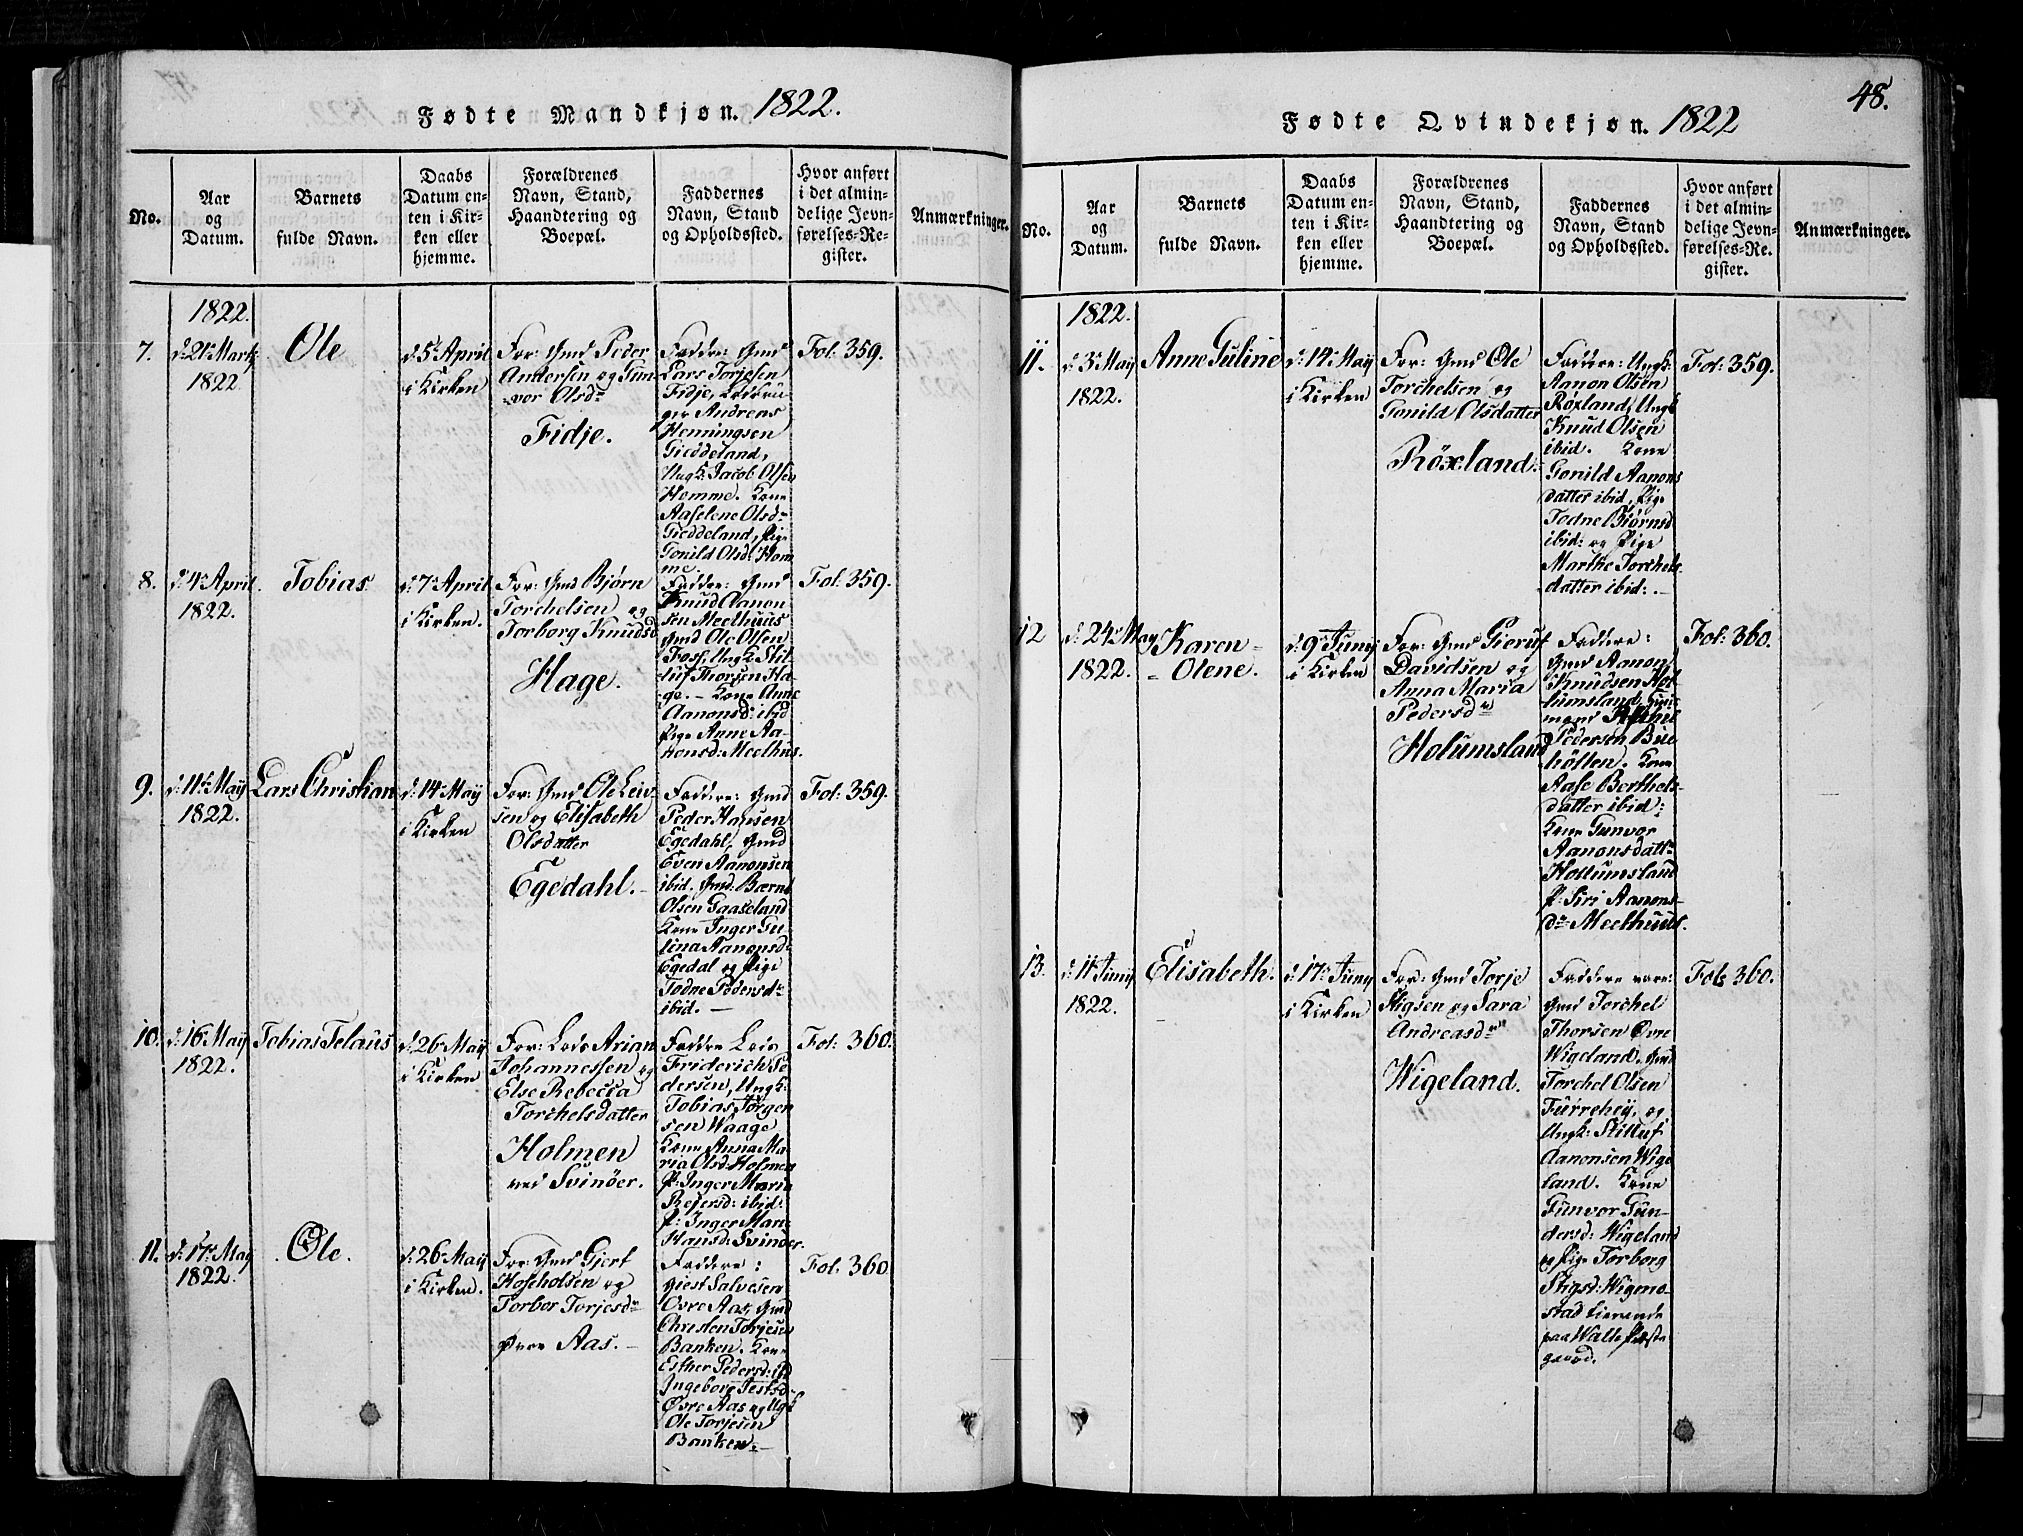 Fødte Mandkjøn. 1822.
No.
Aar
og
Datum.
Barnets
fulde Navn.
Daabs
Datum en-
ten i Kir-
ken eller
hjemme.
Forældrenes
Navn, Stand,
Haandtering og
Boepæl.
Faddernes
Navn, Stand
og Opholdssted.
Hvor anført
i det almin-
delige Jevn-
førelses-Re-
gister.
Anmærkninger.
1822.
7.
d: 21de Martz
1822
Ole
d: 5te April
i Kirken
For: Gmd Peder
Andersen og Gun-
vor Olsdr
Fidje.
Faddre: Gmd
Lars Torjesen
Fidje,
ger Andreas
Henningsen
Gieddeland,
Ungk: Jacob Olsen
Homme. Kone
Aaselene Olsdr
Gieddeland, Pige
Gonild Olsd: Hom
me.
Fol: 359.
8.
d: 4de April
1822.
Tobias
d: 7de April
i Kirken.
For: Gmd Bjørn
Torchelsen og
Torborg Knudsd
Hage.
Faddre: Gmd
Knud Aanon-
sen Meelhuus
Gmd Ole Olsen
Foss, Ungk Stil-
luf Thorsen Ha-
ge. - Kone Anne
Aanonsd: ibid
Pige Anne Aa-
nonsd: Meelhus.
Fol: 359.
9.
d: 11te May
1822.
Lars Christian
d: 14de May
i Kirken
For: Gmd Ole Leiv-
sen og Elisabeth
Olsdatter
Egedahl. -
Faddre: Gmd
Peder Hansen
Egedahl, Gmd
Even Aanonsen
ibid. Gmd: Bærnt
Olsen Gaaseland
Kone Inger Gu-
lina Aanonsd:
Egedal og Pige
Todne Pedersdr
ibid. -
Fol: 359.
10.
d: 16de May
1822.
Tobias Telaus
d: 26de May
i Kirken
For: Lods Arian
Johannessen og
Else Rebecca
Torchelsdatter
Holmen
ved Svinöer.
Faddre Lods
Friderich Pe
dersen, Ungk:
Tobias Jørgen
sen Waage
Kone Anna Ma-
ria Olsd: Holmen
P: Inger Maria
Rejersd: ibid.
P: Inger Mar:
Hansd: Svinöer.
Fol: 360.
11.
d: 17de May
1822.
Ole.
d: 26de May
i Kirken.
For: Gmd Gjert
Hoseholsen og
Torbor Torjesdr
Øvre Aas. -
Faddre:
Giest Salvesen
Øvre Aas, Gmd
Christen Torjesen
Banken. Kone
Esther Pedersd: ibd
Ingeborg Jestsd-
Øvre Aas og Ugk
Ole Torjesen
Banken. -
Fol: 360
48.
Fødte Qvindekjøn. 1822
No.
Aar
og
Datum.
Barnets
fulde Navn.
Daabs
Datum en-
ten i Kir-
ken eller
hjemme.
Forældrenes
Navn, Stand,
Haandtering og
Boepæl.
Faddernes
Navn, Stand
og Opholdssted.
Hvor anført
i det almin-
delige Jevn-
førelses-Re-
gister.
Anmærkninger.
1822.
11.
d: 3de May
1822.
Anne Guline
d: 14de May
i Kirken
For: Gmd Ole
Torchelsen og
Gonild Olsdatter
Röxland.
Faddere: Ungk:
Aanon Olsen
Røxland, Ungk
Knud Olsen
ibid. Kone
Gonild Aanons
datter ibid, Pige
Todne Biørnsd
ibid: og Pige
Marthe Torchels-
datter ibid: -
Fol: 359.
12
d: 24de May
1822.
Karen-
-Olene.
d: 9de Juny
i Kirken
For: Gmd Gieruf
Davidsen og
Anna Maria
Pedersdr
Holumsland
Faddere:
Gmd Aanon
Knudsen Hol-
lumsland, Huus
mand
Pedersen Bie-
höften. Kone
Aase Berthels-
datter ibid:
Kone Gunvor
Aanonsdattr
Hollumsland
P: Siri Aanons-
dr Meelhuus.
Fol: 360.
13.
d: 11te Juny
1822.
Elisabeth.
d: 17de Juny
i Kirken
For: Gmd Torje
Stigsen og Sara
Andreasdr
Wigeland.
Faddere vare:
Gmd Torchel
Thorsen Øvre
Wigeland, Gmd
Torchel Olsen
Furrehey, og
Ungk: Stilluf
Aanonsen Wige
land. Kone
Gunvor Gun-
dersd: Wigeland
og Pige Torborg
Stigsd: Wigmo-
stad tienende
paa Walle Præste
gaard.
Fol: 360.